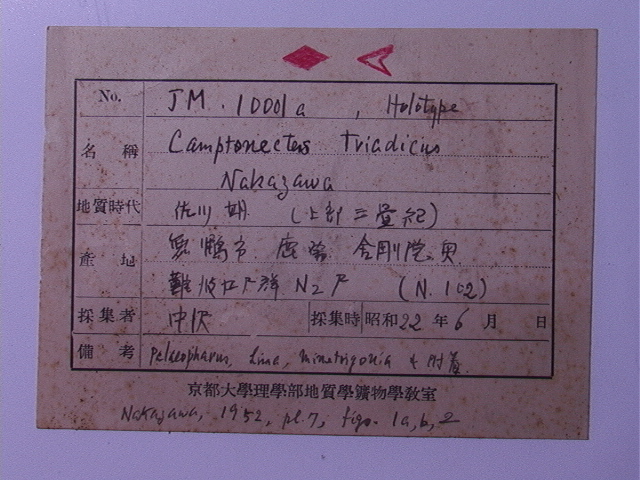 No. JM. 10001a, Holotype
名稱 Camptonectes triadicus
Nakazawa
地質時代 佐川期 (上部三疊紀)
產地 舞鶴市 鹿原 金剛院 奥
難波江層群 N2層 (N.102)
採集者 中沢 採集時 昭和22年6月 日
備考 Palaeopharus, Lima, Minetrigonia と附着
京都大學理學部地質學鑛物學教室
Nakazawa, 1952, pl. 7, figs. 1a, b, 2